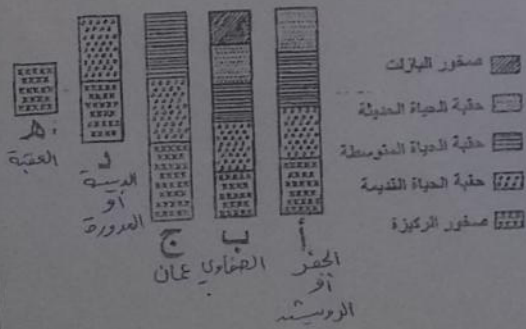 صخور البازلت
حقبة الحياة الحديثة
حقبة الحياة المتوسطة
حقبة الحياة القديمة
صخور الركيزة
أ
الجفر
أو
الرويشد
ب
الصفاوي
ج
عمان
د
الديسة
أو
المدورة
هـ
العقبة